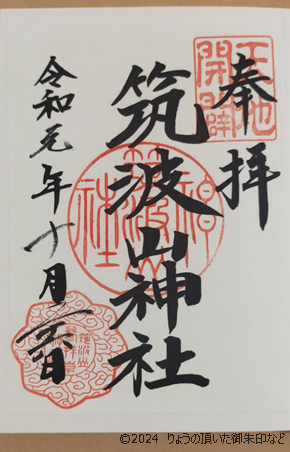 奉拝
天地開闢
筑波山神社
筑波山神社
令和元年十月
©2024 りょうの頂いた御朱印など